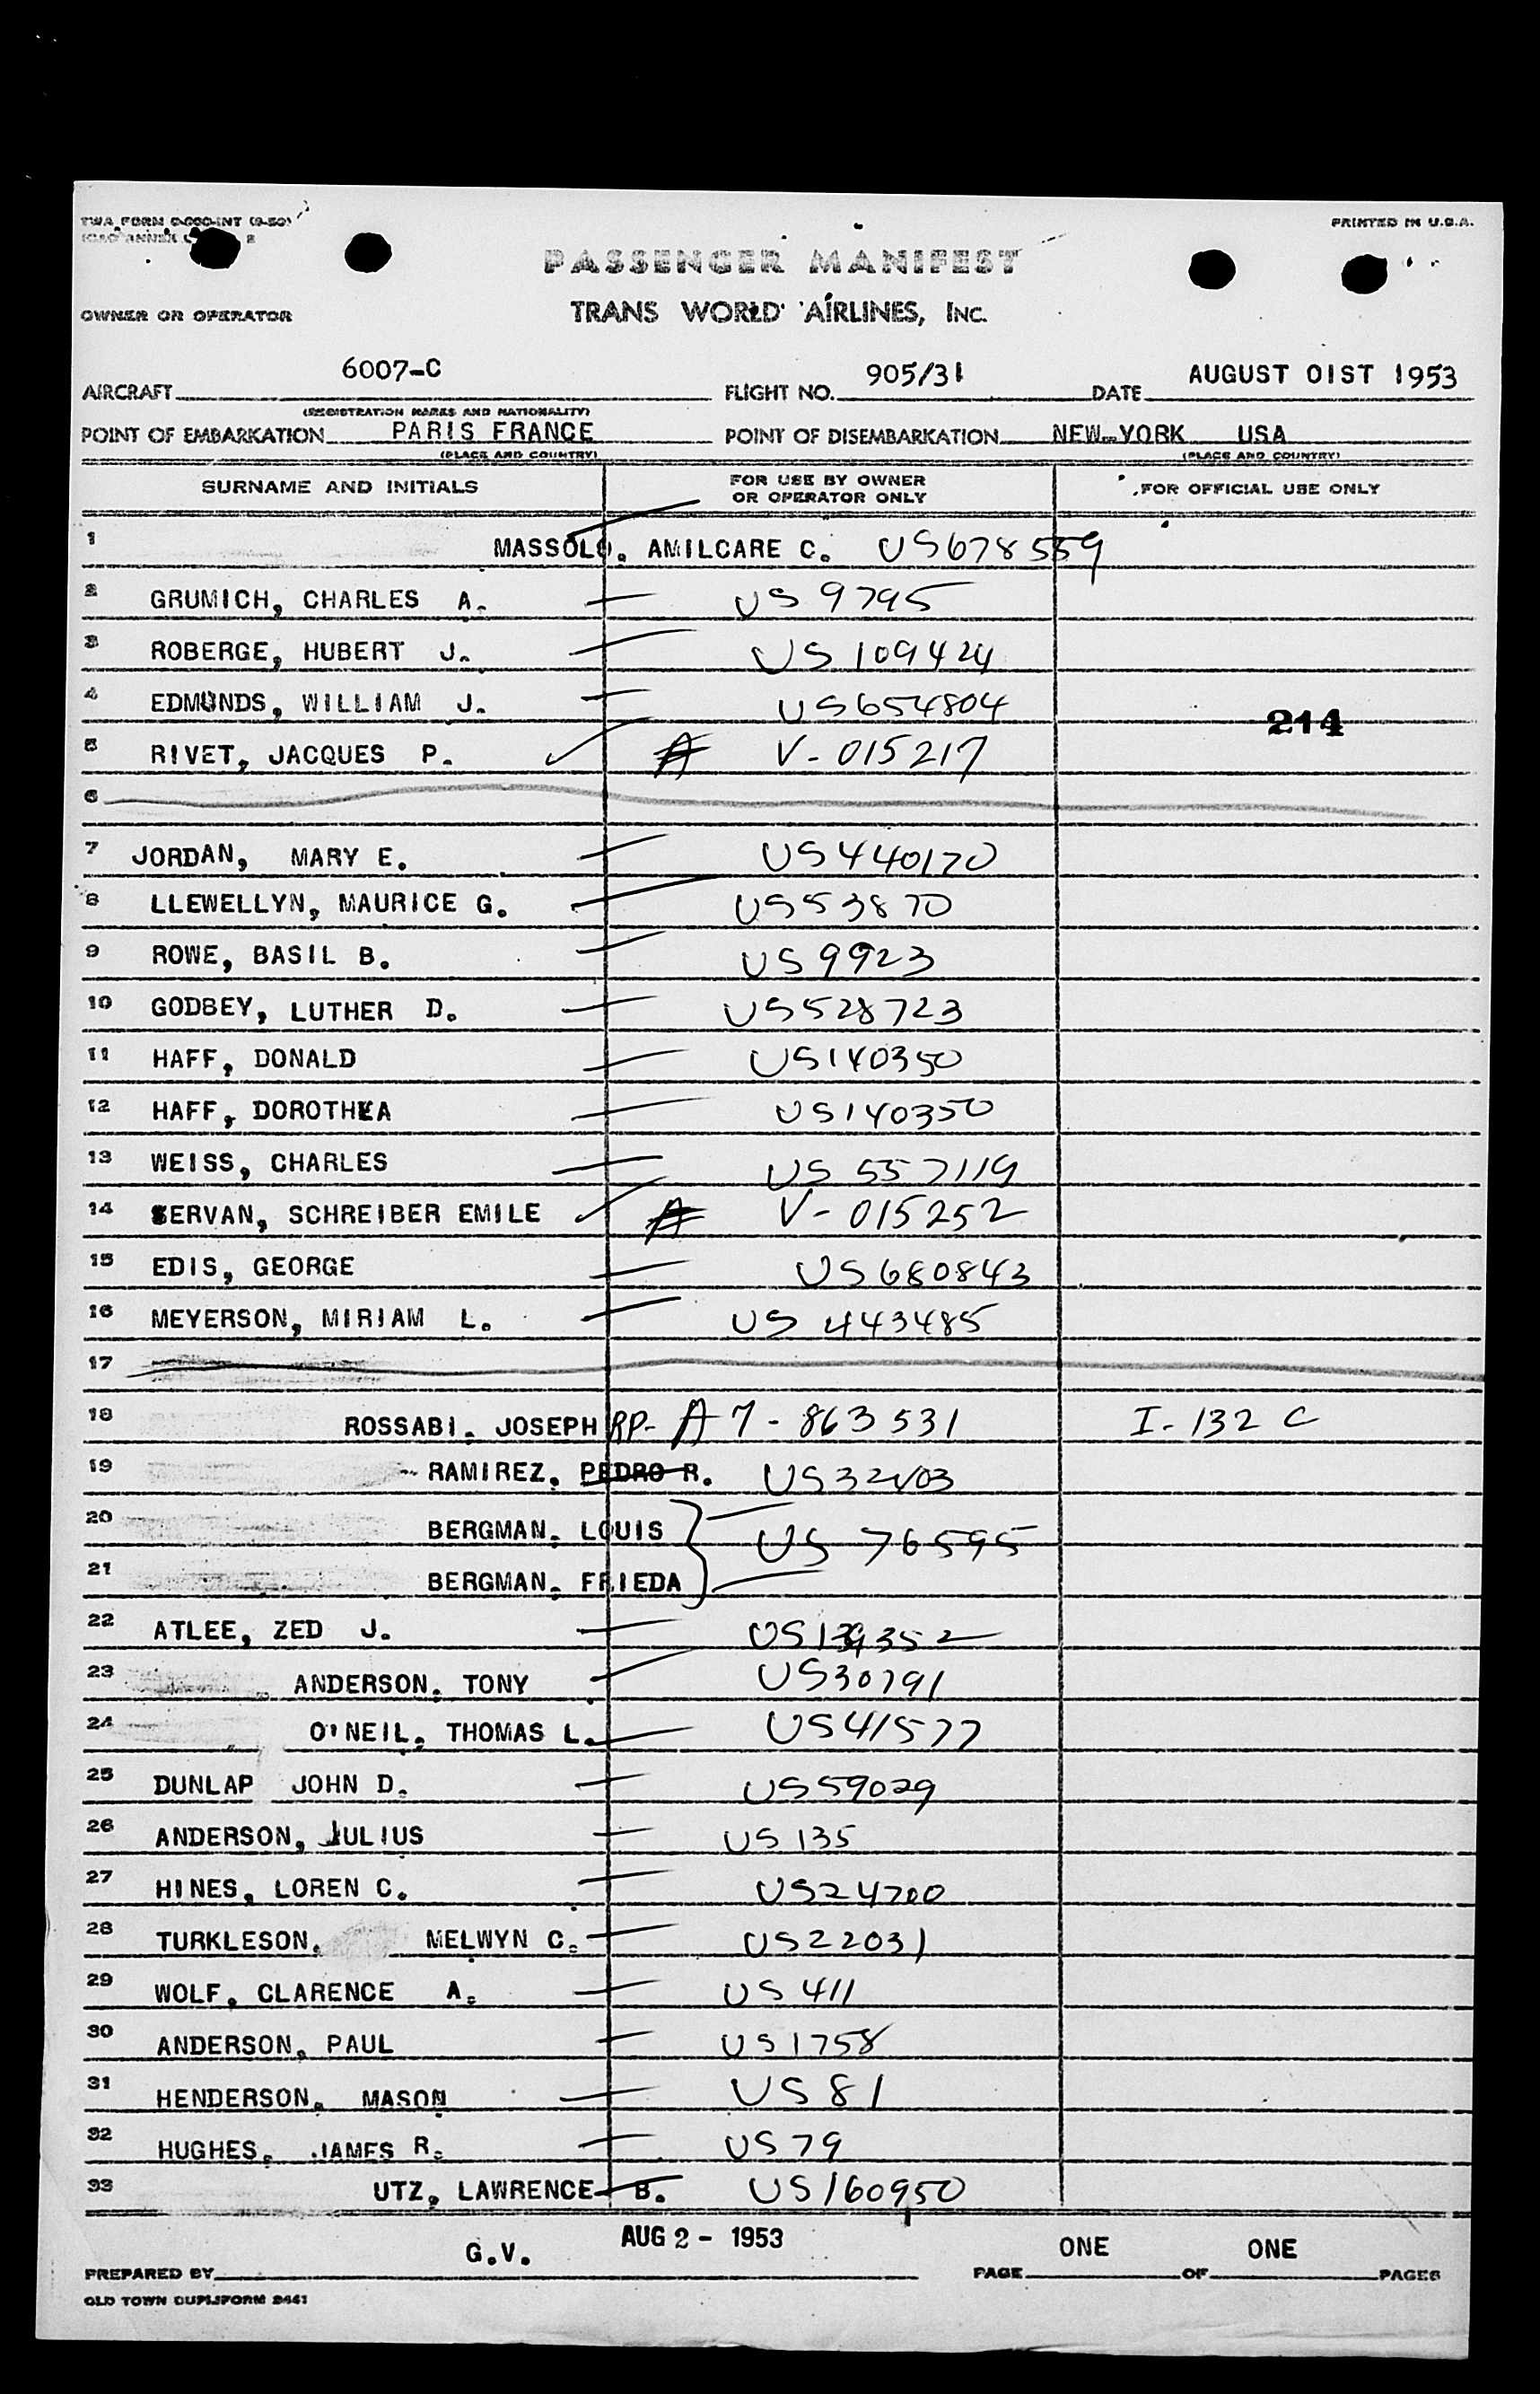 TWA FORM
PRINTED IN U.S.A.
PASSENGER MANIFEST
OWNER OR OPERATOR
TRANS WORLD AIRLINES, INC.
AIRCRAFT 6007-C FLIGHT NO. 905/31 DATE AUGUST 01ST 1953
(REGISTRATION MARKS AND NATIONALITY)
POINT OF EMBARKATION PARIS FRANCE POINT OF DISEMBARKATION NEW YORK USA
(PLACE AND COUNTRY) (PLACE AND COUNTRY)
SURNAME AND INITIALS FOR USE BY OWNER OR OPERATOR ONLY FOR OFFICIAL USE ONLY
1 MASSOLO, AMILCARE C. US678559
2 GRUMICH, CHARLES A. US 9795
3 ROBERGE, HUBERT J. US 109424
4 EDMUNDS, WILLIAM J. US654804
214
5 RIVET, JACQUES P. A V-015217
6
7 JORDAN, MARY E. US440170
8 LLEWELLYN, MAURICE G. US53870
9 ROWE, BASIL B. US9923
10 GODBEY, LUTHER D. US528723
11 HAFF, DONALD US140350
12 HAFF, DOROTHEA US140350
13 WEISS, CHARLES US 557119
14 SERVAN, SCHREIBER EMILE A V-015252
15 EDIS, GEORGE US680843
16 MEYERSON, MIRIAM L. US 443485
17
18 ROSSABI, JOSEPH RP- A7-863531 I-132 C
19 RAMIREZ, PEDRO R.
20 BERGMAN, LOUIS US 76595
21 BERGMAN, FRIEDA
22 ATLEE, ZED J.
23 ANDERSON, TONY US30791
24 O'NEIL, THOMAS L. US41577
25 DUNLAP JOHN D. US59029
26 ANDERSON, JULIUS US 135
27 HINES, LOREN C. US24700
28 TURKLESON, MELWYN C. US22031
29 WOLF, CLARENCE A. US 411
30 ANDERSON, PAUL US1758
31 HENDERSON, MASON US 81
32 HUGHES, JAMES R. US79
33 UTZ, LAWRENCE B. US160950
PREPARED BY G.V. AUG 2 - 1953 PAGE ONE OF ONE PAGES
OLD TOWN DUPLIFORM 9441